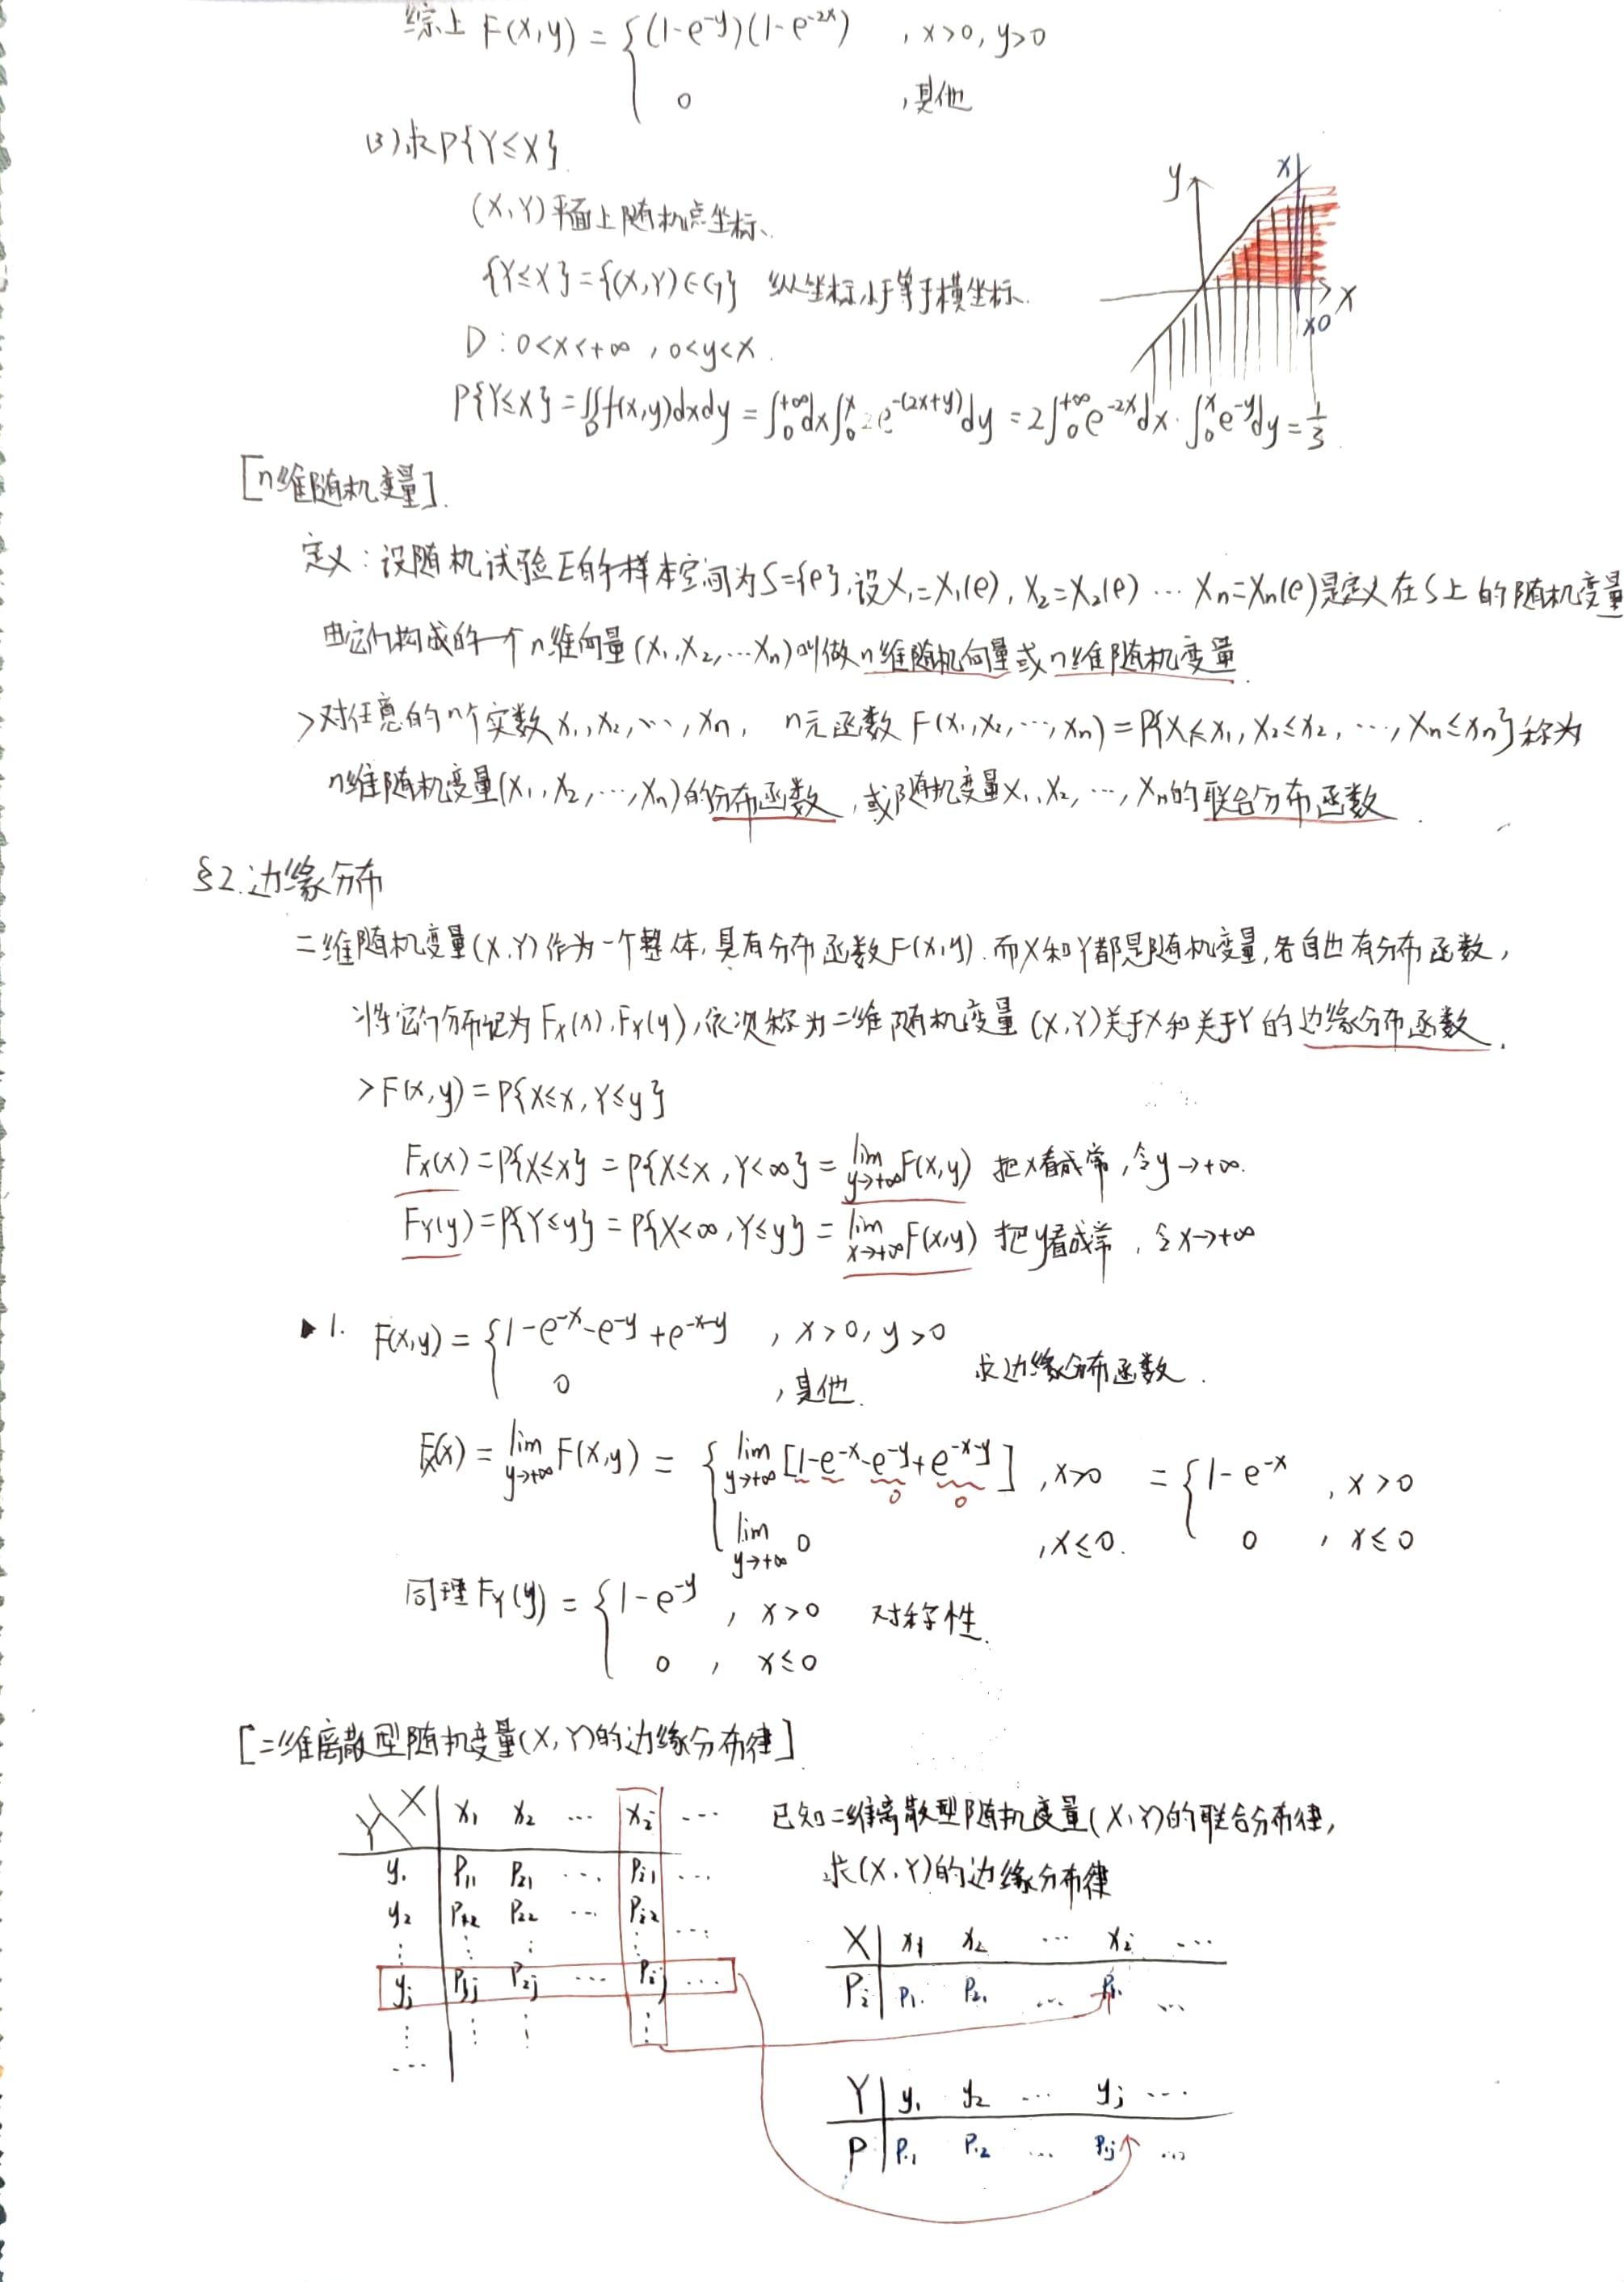 综上 F(x,y) = { (1-e^{-y})(1-e^{-2x}) , x>0, y>0
0 , 其他
(3) 求P{Y≤X}.
(X,Y)平面上随机点坐标.
{Y≤X}={(X,Y)∈G} 纵坐标小于等于横坐标.
D : 0<x<+∞ , 0<y<x .
y x x0 x
P{Y≤X} = ∬_D f(x,y)dxdy = ∫_0^{+∞}dx∫_0^x 2e^{-(2x+y)}dy = 2∫_0^{+∞}e^{-2x}dx·∫_0^x e^{-y}dy = 1/3.
[n维随机变量].
定义：设随机试验E的样本空间为S={e}, 设X₁=X₁(e), X₂=X₂(e) … Xn=Xn(e)是定义在S上的随机变量
由它们构成的一个n维向量(X₁,X₂,…Xn)叫做n维随机向量或n维随机变量.
>对任意的n个实数 x₁,x₂,…,xn, n元函数 F(x₁,x₂,…,xn)=P{X≤x₁,X₂≤x₂,…,Xn≤xn}称为
n维随机变量(X₁,X₂,…,Xn)的分布函数, 或随机变量X₁,X₂,…,Xn的联合分布函数.
§2.边缘分布
二维随机变量(X,Y)作为一个整体,具有分布函数F(x,y).而X和Y都是随机变量,各自也有分布函数,
将它们分布记为Fx(x),Fx(y),依次称为二维随机变量(X,Y)关于X和关于Y的边缘分布函数.
>F(x,y)=P{X≤x,Y≤y}
Fx(x)=P{X≤x}=P{X≤x,Y<∞}=lim_{y→+∞}F(x,y) 把x看成常,令y→+∞.
FY(y)=P{Y≤y}=P{X<∞,Y≤y}=lim_{x→+∞}F(x,y) 把y看成常,令x→+∞
▶1. F(x,y) = { 1-e^{-x}-e^{-y}+e^{-x-y} , x>0, y>0
0 , 其他. 求边缘分布函数.
Fx(x) = lim_{y→+∞}F(x,y) = { lim_{y→+∞}[1-e^{-x}-e^{-y}+e^{-x-y}] , x>0 = { 1-e^{-x} , x>0
0 0
lim_{y→+∞} 0 , x≤0. 0 , x≤0
同理 FY(y) = { 1-e^{-y} , x>0 对称性.
0 , x≤0
[二维离散型随机变量(X,Y)的边缘分布律]
Y X x₁ x₂ … xi …
y₁ P₁₁ P₂₁ … Pi1 …
y₂ P₁₂ P₂₂ … Pi2 …
⋮ ⋮ ⋮ ⋮
yj P1j P2j … Pij …
⋮ ⋮ ⋮ ⋮
…
已知二维离散型随机变量(X,Y)的联合分布律,
求(X,Y)的边缘分布律
X x₁ x₂ … xi …
Pi P₁. P₂. … Pi. …
Y y₁ y₂ … yj …
P P.₁ P.₂ … P.j …